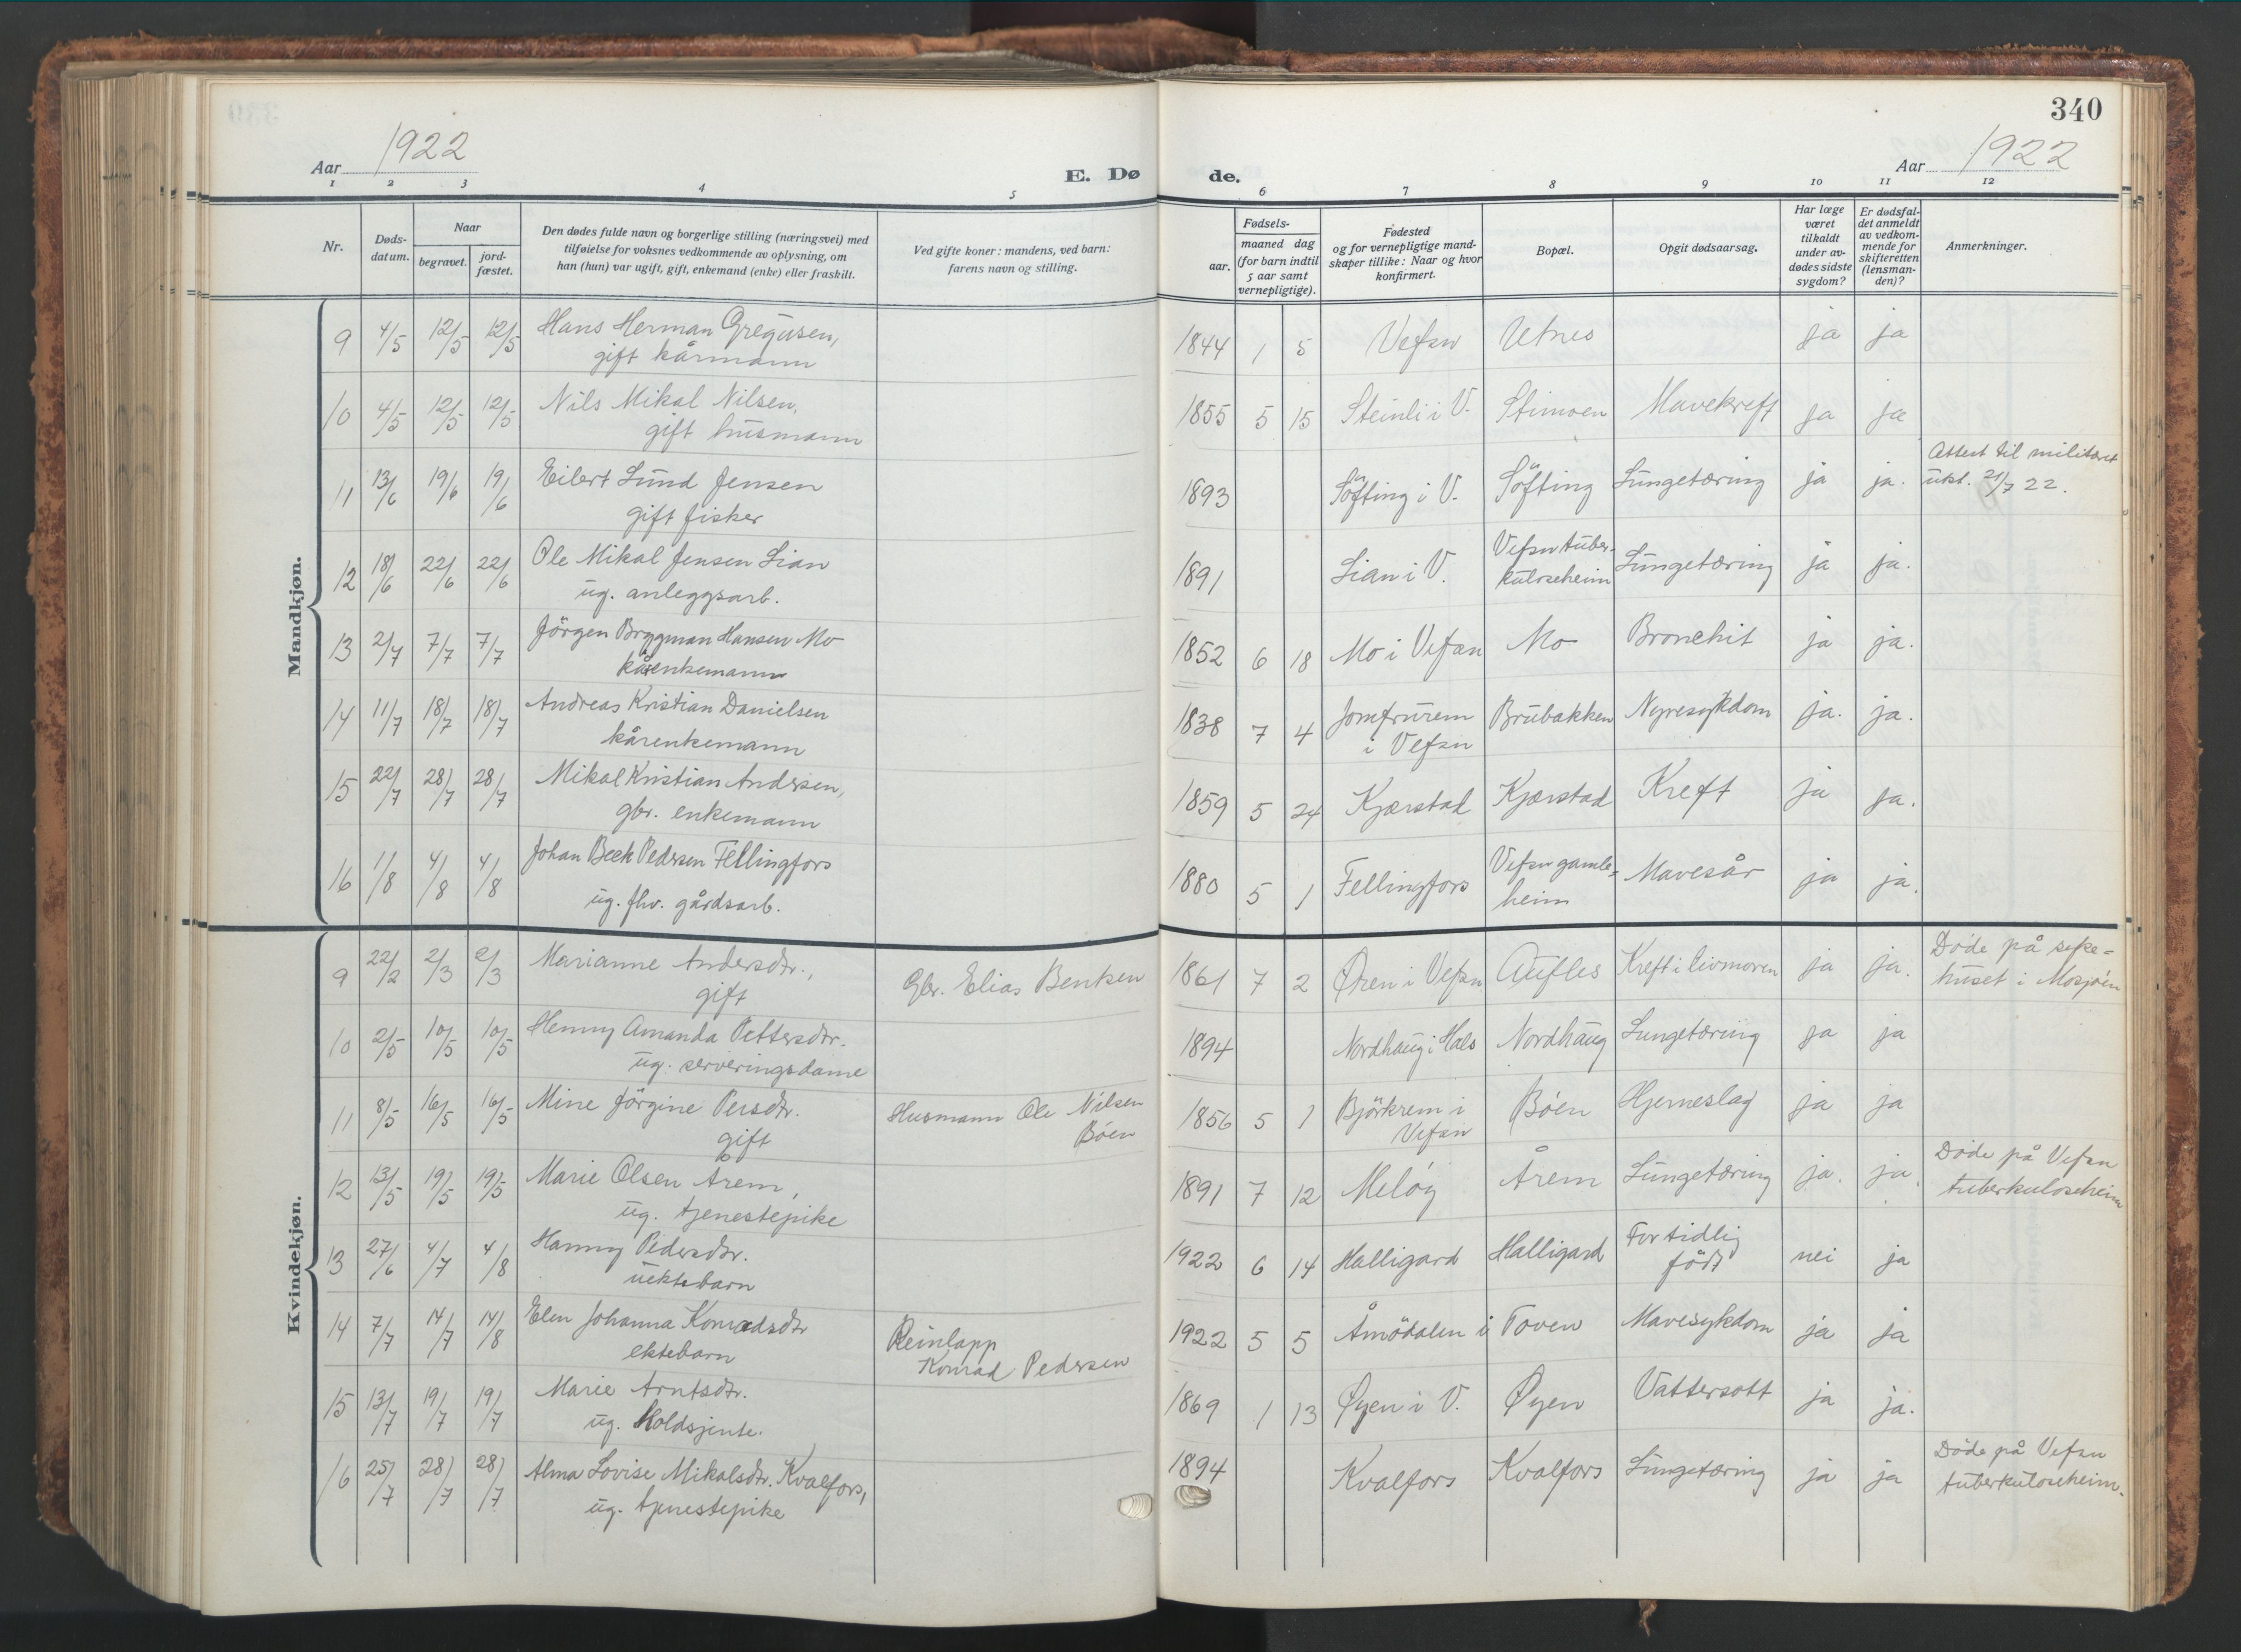 340
Aar 1922
E. Dø
de.
Aar 1922
1 2 3 4 5 6 7 8 9 10 11 12
Nr.
Døds-
datum.
Naar
begravet.
jord-
fæstet.
Den dødes fulde navn og borgerlige stilling (næringsvei) med
tilføielse for voksnes vedkommende av oplysning, om
han (hun) var ugift, gift, enkemand (enke) eller fraskilt.
Ved gifte koner: mandens, ved barn:
farens navn og stilling.
Fødsels-
aar.
maaned dag
(for barn indtil
5 aar samt
vernepligtige).
Fødested
og for vernepligtige mand-
skaper tillike: Naar og hvor
konfirmert.
Bopæl.
Opgit dødsaarsag.
Har læge
været
tilkaldt
under av-
dødes sidste
sygdom?
Er dødsfal-
det anmeldt
av vedkom-
mende for
skifteretten
(lensman-
den)?
Anmerkninger.
Mandkjøn.
9 4/5 12/5 12/5 Hans Herman Gregusen, 1844 1 5 Vefsn Utnes ja ja
gift kårmann
10 4/5 12/5 12/5 Nils Mikal Nilsen, 1855 5 15 Steinli i V. Stimoen Mavekreft ja ja
gift husmann
Attest til militæret
11 13/6 19/6 19/6 Eilert Lund Jensen 1893 Söfting i V. Söfting Lungetæring ja ja. utst. 21/7 22.
gift fisker
12 18/6 22/6 22/6 Ole Mikal Jensen Lian 1891 Lian i V. Vefsn tuber- Lungetæring ja ja.
ug. anleggsarb. kuloseheim
13 2/7 7/7 7/7 Jörgen Brygman Hansen Mo 1852 6 18 Mo i Vefsn Mo Bronchit ja ja.
kårenkemann
14 11/7 18/7 18/7 Andreas Kristian Danielsen 1838 7 4 Jomfrurem Brubakken Nyresykdom ja. ja.
kårenkemann i Vefsn
15 22/7 28/7 28/7 Mikal Kristian Andersen, 1859 5 24 Kjærstad Kjærstad Kreft ja ja.
gbr. enkemann
16 1/8 4/8 4/8 Johan Beck Pedersen Fellingfors 1880 5 1 Fellingfors Vefsn gamle- Mavesår ja ja.
ug. fhv. gårdsarb. heim
Kvindekjøn.
9 22/2 2/3 2/3 Marianne Andersdtr., Gbr. Elias Bentsen 1861 7 2 Øren i Vefsn Aufles Kreft i livmoren ja ja. Döde på syke-
gift huset i Mosjöen
10 2/5 10/5 10/5 Henny Amanda Pettersdtr. 1894 Nordhaug i Hals Nordhaug Lungetæring ja ja
ug. serveringsdame
11 8/5 16/5 16/5 Mine Jörgine Persdtr. Husmann Ole Nilsen 1856 5 1 Björkrem i Böen Hjerneslag ja ja
gift Böen Vefsn
12 13/5 19/5 19/5 Marie Olsen Årem, 1891 7 12 Melöy Årem Lungetæring ja. ja. Döde på Vefsn
ug. tjenestepike tuberkuloseheim
13 27/6 4/7 4/8 Hanny Pedersdtr. 1922 6 14 Halligard Halligard For tidlig nei ja
uektebarn födt
14 7/7 14/7 14/8 Elen Johanna Konradsdtr Reinlapp 1922 5 5 Åmödalen i Toven Mavesykdom ja ja
ektebarn Konrad Pedersen
15 13/7 19/7 19/7 Marie Arntsdtr. 1869 1 13 Øyen i V. Øyen Vattersott ja ja.
ug. Holdsjente.
16 25/7 28/7 28/7 Alma Lovise Mikalsdtr. Kvalfors, 1894 Kvalfors Kvalfors Lungetæring ja ja Döde på Vefsn
ug. tjenestepike tuberkuloseheim.